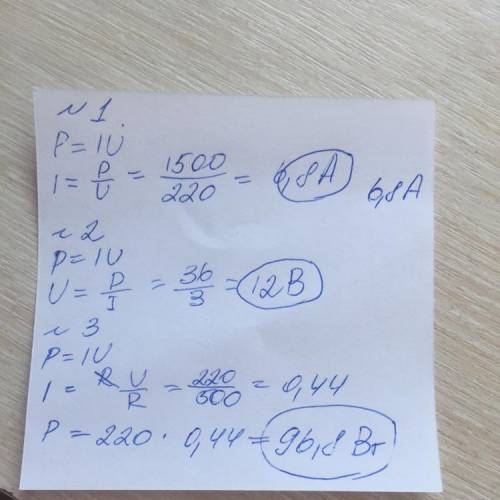 № 1.
P = IU
I = P/U = 1500/220 = 6,8 A 6,8 A
№ 2
P = IU
U = P/I = 36/3 = 12 В
№ 3
P = IU
I = U/R = 220/500 = 0,44
P = 220 · 0,44 = 96,8 Вт